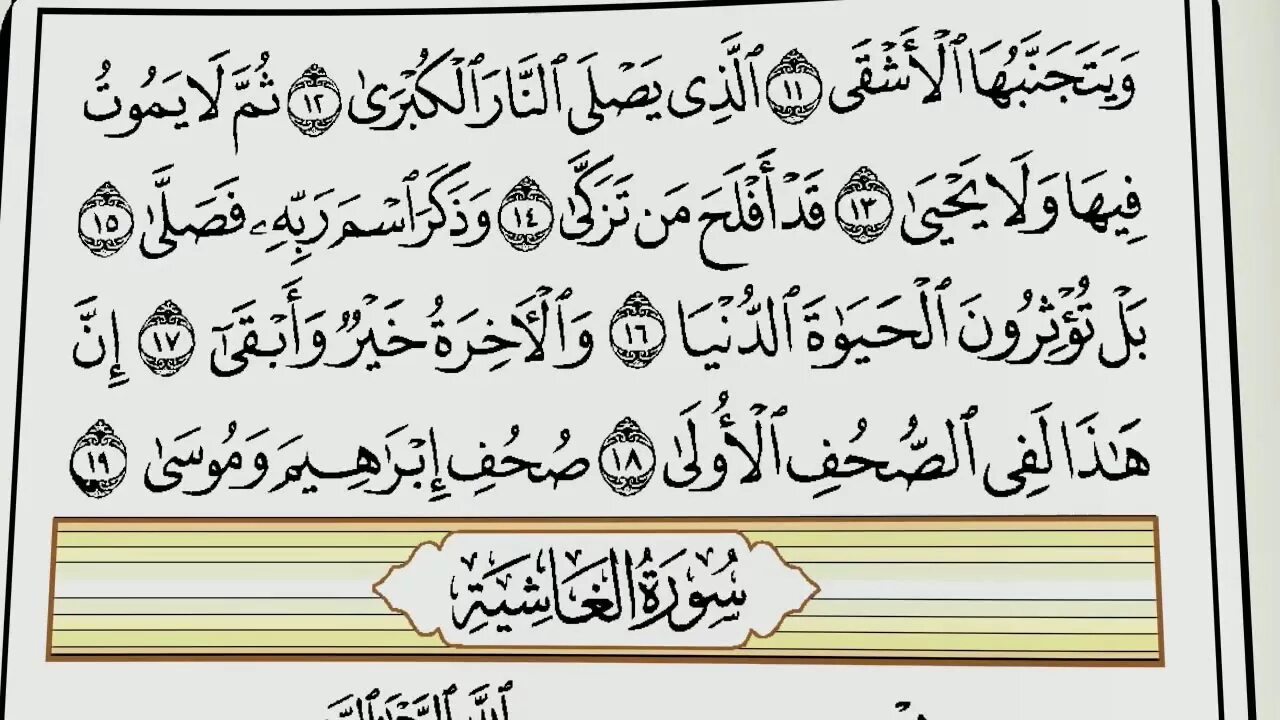 وَيَتَجَنَّبُهَا ٱلْأَشْقَى ١١ ٱلَّذِى يَصْلَى ٱلنَّارَ ٱلْكُبْرَىٰ ١٢ ثُمَّ لَا يَمُوتُ
فِيهَا وَلَا يَحْيَىٰ ١٣ قَدْ أَفْلَحَ مَن تَزَكَّىٰ ١٤ وَذَكَرَ ٱسْمَ رَبِّهِۦ فَصَلَّىٰ ١٥
بَلْ تُؤْثِرُونَ ٱلْحَيَوٰةَ ٱلدُّنْيَا ١٦ وَٱلْأَخِرَةُ خَيْرٌ وَأَبْقَىٰٓ ١٧ إِنَّ
هَٰذَا لَفِى ٱلصُّحُفِ ٱلْأُولَىٰ ١٨ صُحُفِ إِبْرَٰهِيمَ وَمُوسَىٰ ١٩
سُورَةُ الْغَاشِيَةِ